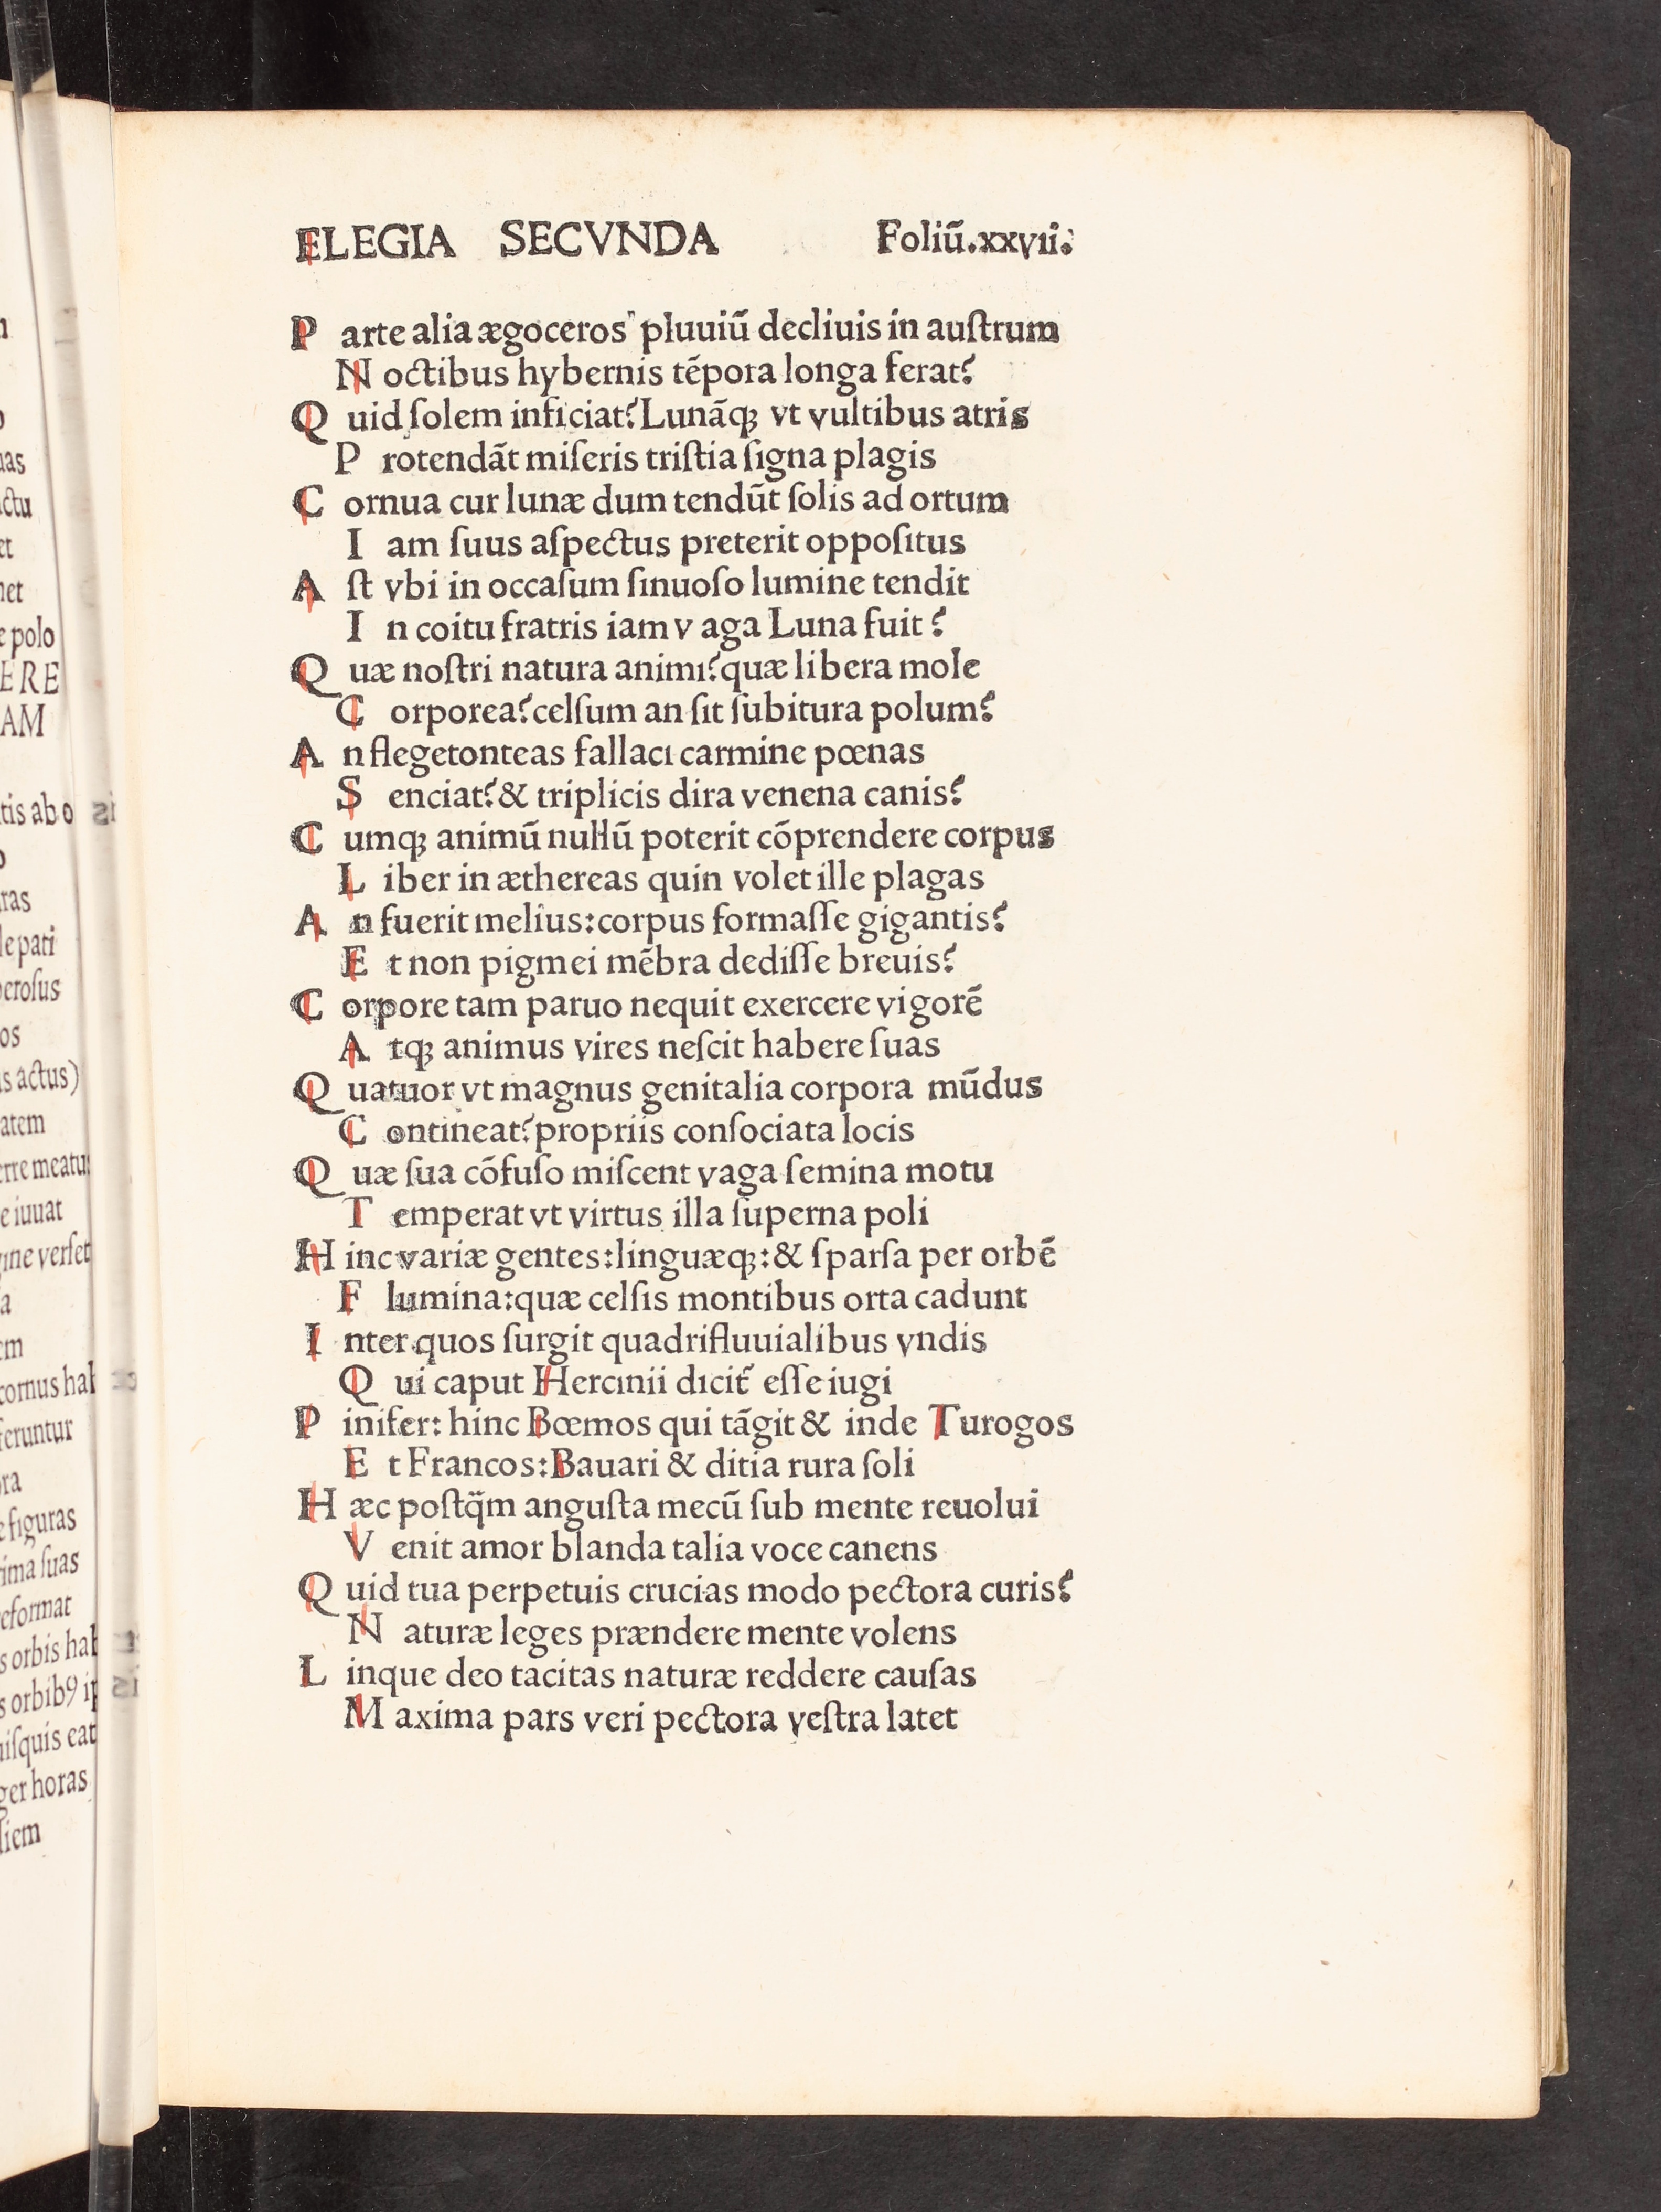 ELEGIA SECVNDA Foliū.xxvii.
P arte alia ægoceros pluuiū decliuis in auſtrum
N octibus hybernis tēpora longa ferat?
Q uid ſolem inficiat? Lunāqꝫ vt vultibus atris
P rotendāt miſeris triſtia ſigna plagis
C ornua cur lunæ dum tendūt ſolis ad ortum
I am ſuus aſpectus preterit oppoſitus
A ſt vbi in occaſum ſinuoſo lumine tendit
I n coitu fratris iam v aga Luna fuit?
Q uæ noſtri natura animi? quæ libera mole
C orporea? celſum an ſit ſubitura polum?
A n flegetonteas fallaci carmine pœnas
S enciat? & triplicis dira venena canis?
C umqꝫ animū nullū poterit cōprendere corpus
L iber in æthereas quin volet ille plagas
A n fuerit melius: corpus formaſſe gigantis?
E t non pigmei mēbra dediſſe breuis?
C orpore tam paruo nequit exercere vigorē
A tqꝫ animus vires neſcit habere ſuas
Q uatuor vt magnus genitalia corpora mūdus
C ontineat? propriis conſociata locis
Q uæ ſua cōfuſo miſcent vaga ſemina motu
T emperat vt virtus illa ſuperna poli
H inc variæ gentes: linguæqꝫ: & ſparſa per orbē
F lumina: quæ celſis montibus orta cadunt
I nter quos ſurgit quadrifluuialibus vndis
Q ui caput Hercinii dicit᷑ eſſe iugi
P inifer: hinc Bœmos qui tāgit & inde Turogos
E t Francos: Bauari & ditia rura ſoli
H æc poſtq̄m anguſta mecū ſub mente reuolui
V enit amor blanda talia voce canens
Q uid tua perpetuis crucias modo pectora curis?
N aturæ leges prændere mente volens
L inque deo tacitas naturæ reddere cauſas
M axima pars veri pectora veſtra latet